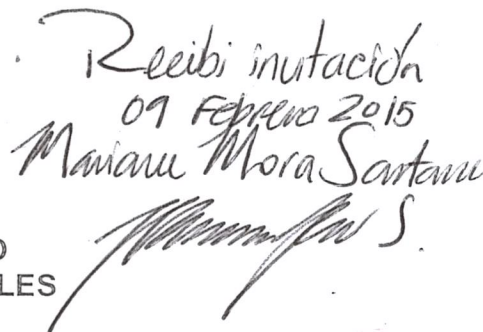 Recibi invitación
09 Febrero 2015
Mariana Mora Santana
S.
LES